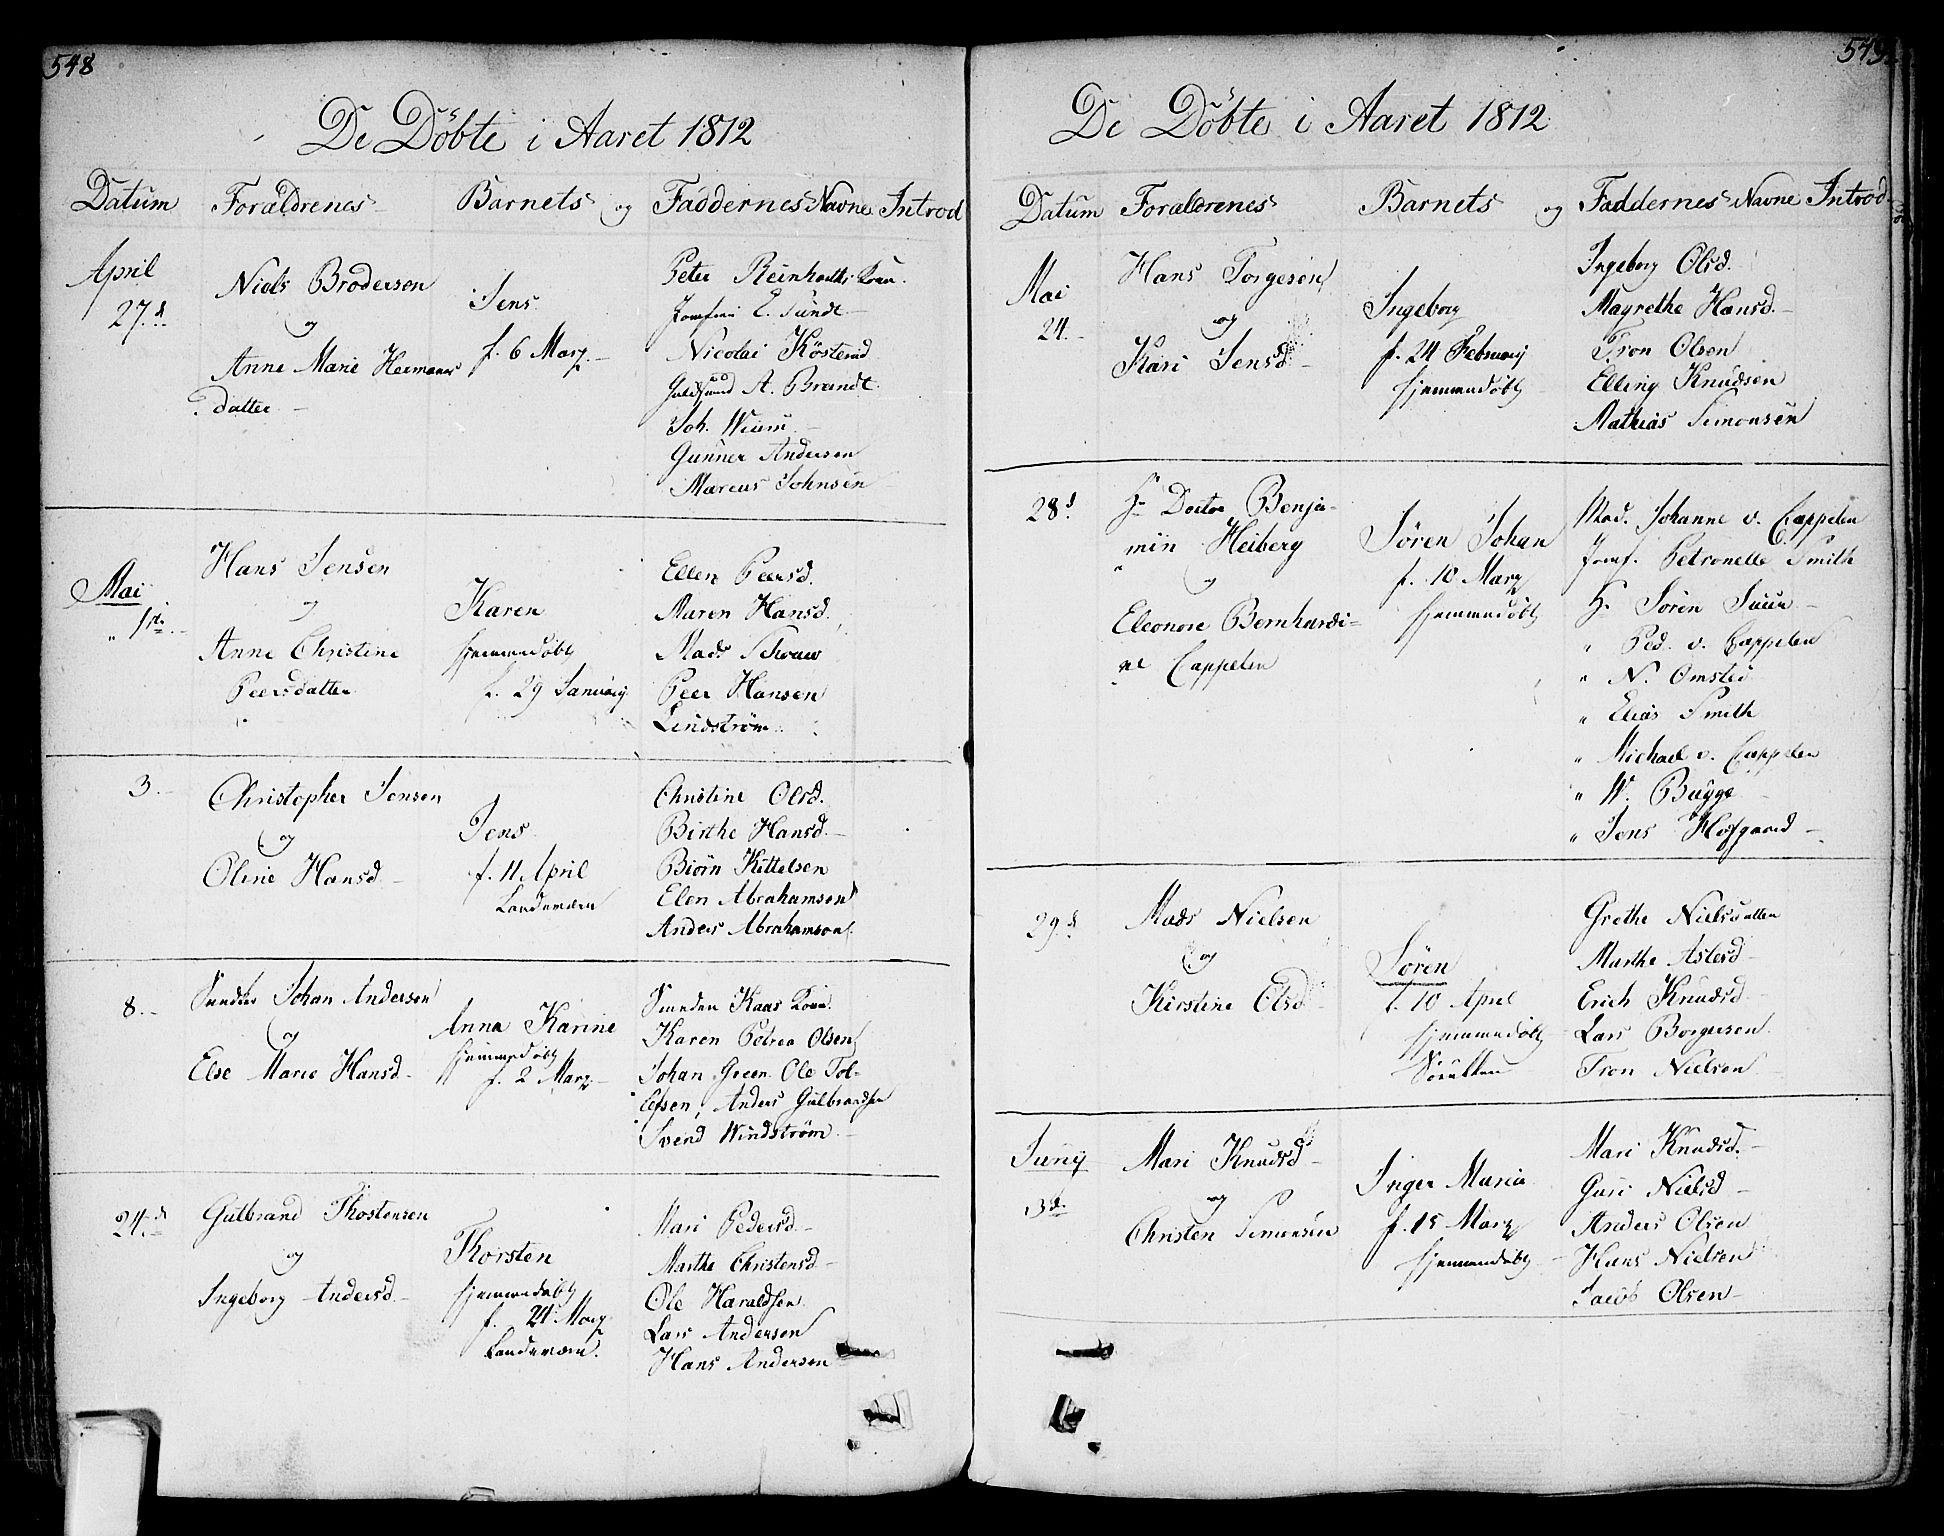 548
De Döbte i Aaret 1812
Datum Forældrenes Barnets og Faddernes Navne Introd
April
27.d
Niels Brodersen
og
Anne Marie Hermans
datter
Jens
f. 6 Marz.
Peter Reinhardts Kone.
Jomfru E. Sundt
Nicolai Kösterud
A. Brandt
Joh. Wium
Gunner Andersen
Marcus Johnsen
Mai
1ste
Hans Jensen
og
Anne Christine
Peersdatter
Karen
hjemmedøbt
f. 29 Januarij
Ellen Peersd.
Maren Hansd.
Mads Schouw
Peer Hansen
Lindstrøm
3.
Christopher Jensen
og
Oline Hansd.
Jens
f. 11 April
Landeværn
Christine Olsd.
Birthe Hansd.
Biörn Kittelsen
Elen Abrahamsen
Anders Abrahamson
8.
Johan Andersen
og
Else Marie Hansd.
Anna Karine
hjemmedøbt
f. 2 Marz
Kaas Kone.
Karen Petrea Olsen
Johan Green. Ole Tol-
lefsen, Anders Gulbrandsen
Svend Windstrøm.
24.d
Gulbrand Thostensen
og
Ingeborg Andersd.
Thorsten
hjemmedøbt
f. 21 Marz
Landeværn.
Mari Pedersd.
Marthe Christensd
Ole Haraldsen
Lars Andersen
Hans Andersen
549
De Döbte i Aaret 1812
Datum Forældrenes Barnets og Faddernes Navne Introd
Mai
24.
Hans Torgesen
og
Kari Jensd.
Ingeborg
f. 24 Februarij
hjemmedøbt
Ingeborg Olsd.
Magrethe Hansd.
Tron Olsen
Elling Knudsen
Mathias Simonsen
28.d
Hr. Doctor Benja-
min Heiberg
og
Eleonore Bernhardi-
ne Cappelen
Sören Johan
f. 10 Marz
hjemmedøbt
Mad. Johanne v. Cappelen
Jomf. Petronelle Smith
Hr. Sören Juur
" Ped. v. Cappelen
" N. Omsted
" Elias Smith
" Michael v. Cappelen
" W. Bugge
" Jens Hofgaard
29.d
Mads Nielsen
og
Kirstine Olsd.
Sören
f. 10 April
hjemmedøbt
Grethe Nielsdatter
Marthe Aslesd
Erich Knudsd
Lars Borgersen.
Tron Nielsen
Junij
3d.
Mari Knudsd
og
Christen Simonsen
Inger Maria
f. 15 Marz
hjemmedøbt
Mari Knudsd.
Guri Nielsd
Anders Olsen
Hans Nielsen
Jacob Olsen